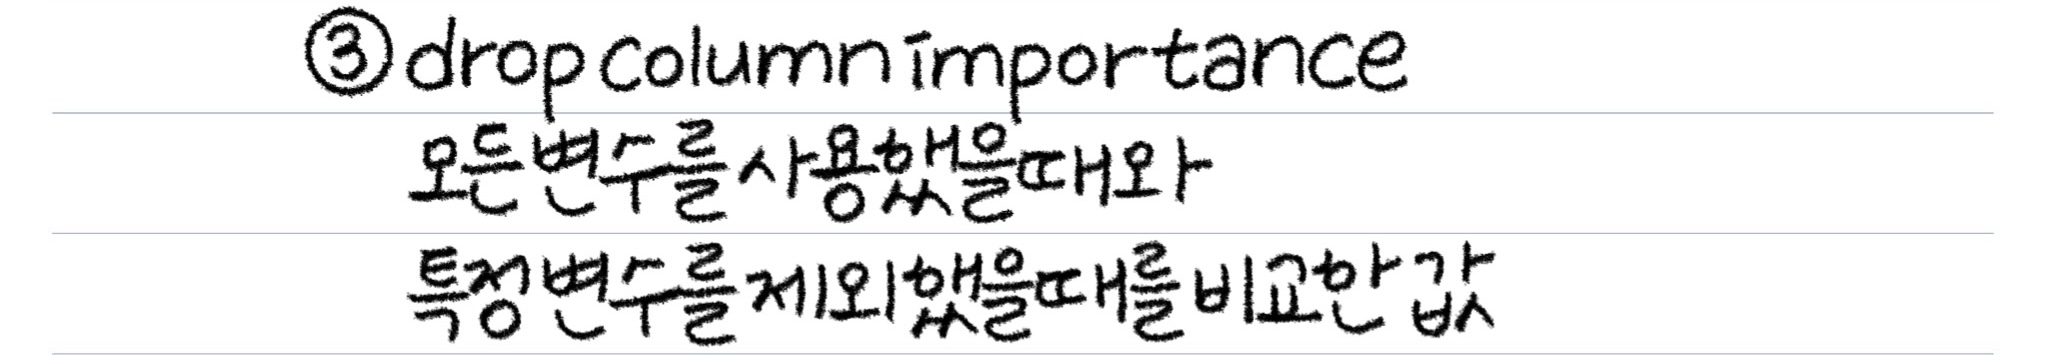 ③ drop column importance
모든 변수를 사용했을 때와
특정 변수를 제외했을 때를 비교한 값